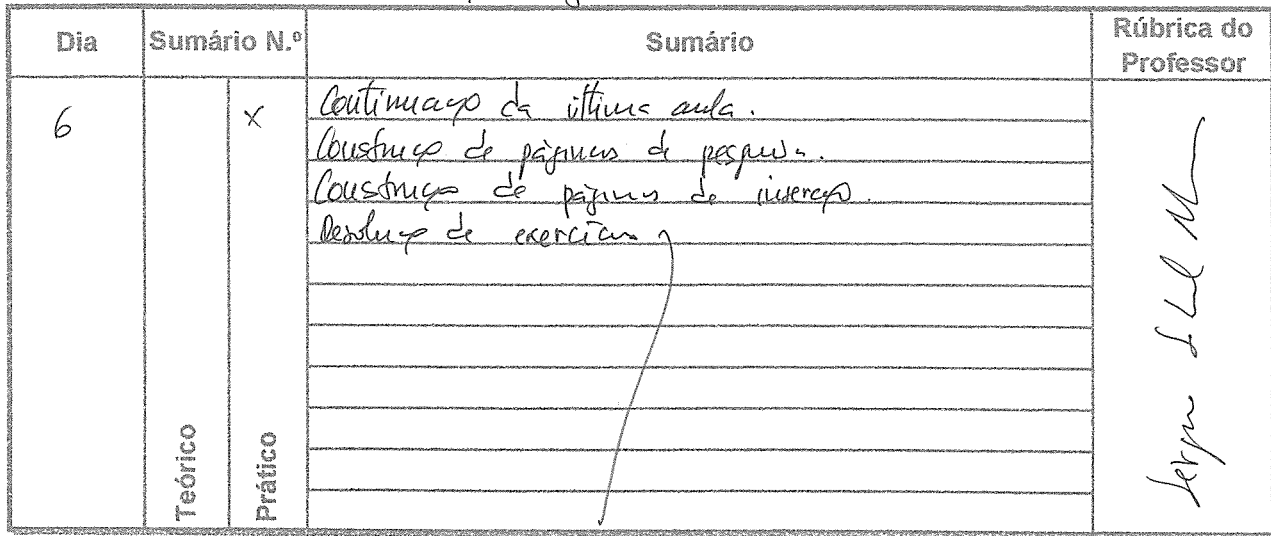 Dia Sumário N.º Sumário Rúbrica do Professor
6 x Continuação da última aula.
Construção de páginas de pesquisa.
Construção de páginas de inserção.
Resolução de exercícios
Teórico Prático